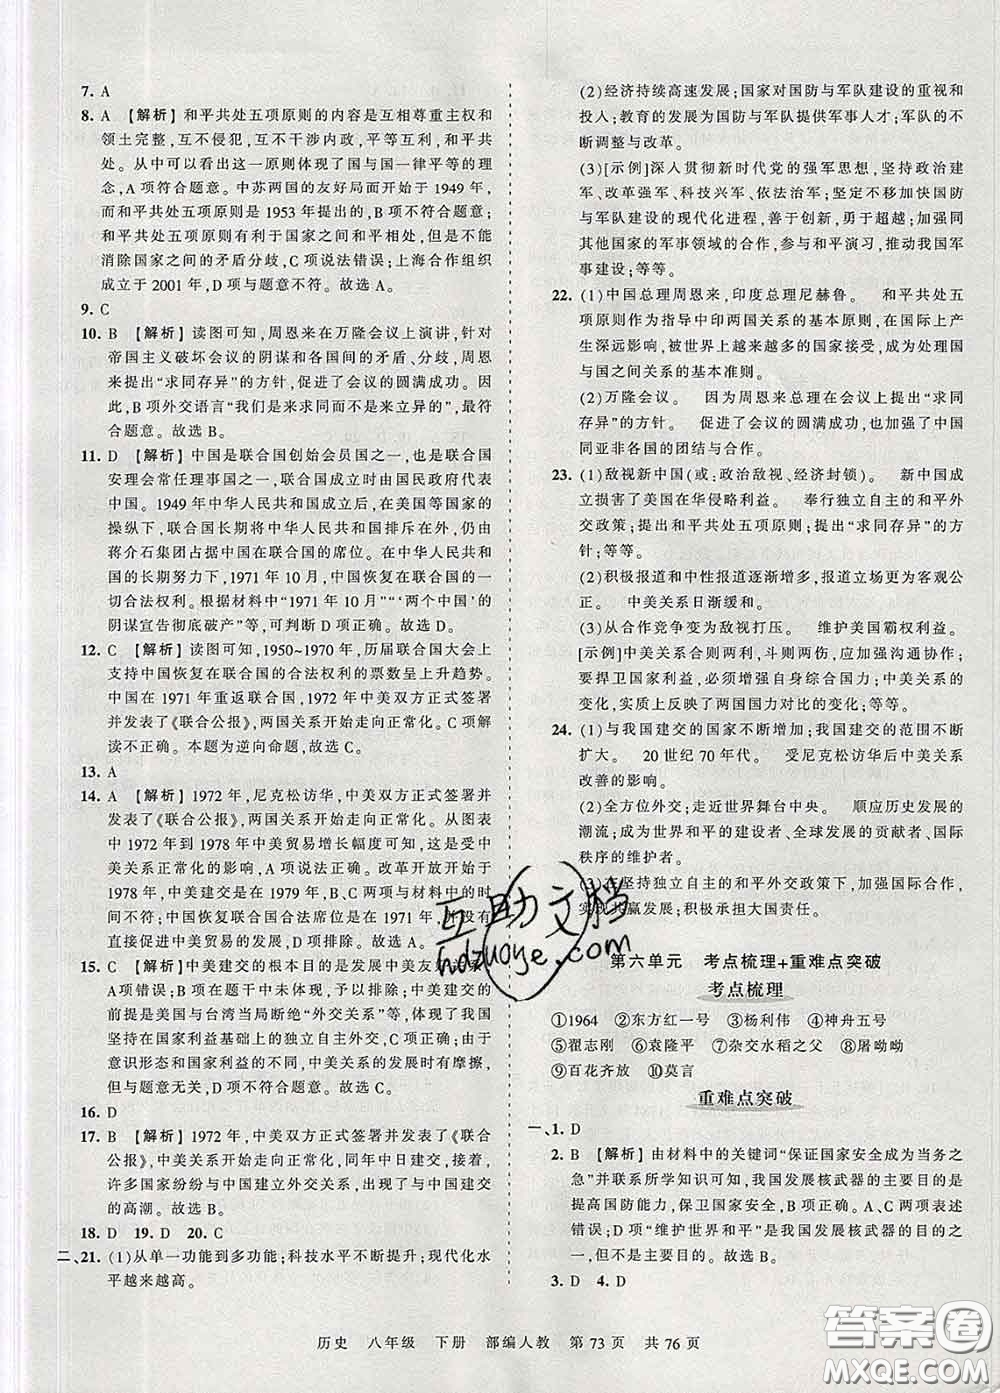 7. A
8. A 【解析】和平共处五项原则的内容是互相尊重主权和
领土完整,互不侵犯,互不干涉内政,平等互利,和平共
处。从中可以看出这一原则体现了国与国一律平等的理
念,A 项符合题意。中苏两国的友好局面开始于 1949 年,
而和平共处五项原则是 1953 年提出的,B 项不符合题意;
和平共处五项原则有利于国家之间和平相处,但是不能
消除国家之间的矛盾分歧,C 项说法错误;上海合作组织
成立于 2001 年,D 项与题意不符。故选 A。
9. C
10. B 【解析】读图可知,周恩来在万隆会议上演讲,针对
帝国主义破坏会议的阴谋和各国间的矛盾、分歧,周恩
来提出“求同存异”的方针,促进了会议的圆满成功。因
此,B 项外交语言“我们是来求同而不是来立异的”,最符
合题意。故选 B。
11. D 【解析】中国是联合国创始会员国之一,也是联合国
安理会常任理事国之一,联合国成立时由国民政府代表
中国。1949 年中华人民共和国成立后,在美国等国家的
操纵下,联合国长期将中华人民共和国排斥在外,仍由
蒋介石集团占据中国在联合国的席位。在中华人民共和
国的长期努力下,1971 年 10 月,中国恢复在联合国的一
切合法权利。根据材料中“1971 年 10 月”“‘两个中国’的
阴谋宣告彻底破产”等,可判断 D 项正确。故选 D。
12. C 【解析】读图可知,1950~1970 年,历届联合国大会上
支持中国恢复在联合国的合法权利的票数呈上升趋势。
中国在 1971 年重返联合国,1972 年中美双方正式签署
并发表了《联合公报》,两国关系开始走向正常化。C 项解
读不正确。本题为逆向命题,故选 C。
13. A
14. A 【解析】1972 年,尼克松访华,中美双方正式签署并
发表了《联合公报》,两国关系开始走向正常化。从图表
中可以看出 1972 年中美贸易增长幅度可大,这是受中
美关系正常化的影响,A 项说法正确。改革开放开始于
1978 年,中美建交是在 1979 年,B、C 两项与材料中的时
间不符;中国恢复联合国合法席位是在 1971 年,并没有
直接促进中美贸易的发展,D 项排除。故选 A。
15. C 【解析】中美建交的根本目的是为了维护国家利益,
A项错误;B 项在题干中未体现,予以排除;中美建交的
前提是美国与台湾当局断绝“外交关系”等,体现了我国
坚持在国家利益基础上的外交关系,C 项正确;由于
意识形态和国家利益的不同,中美关系有时出现摩擦,
但与题意无关,D 项排除。故选 C。
16. D
17. B 【解析】1972 年,中美双方正式签署并发表了《联合
公报》,中美关系开始走向正常化。同年中日建交,接着,
许多国家纷纷与中国建立外交关系,出现了与中国建交
的高潮。故选 B。
18. D 19. D 20. C
二、21. (1)从单一功能到多功能;科技水平不断提升;现代化水
平越来越高。
(2)经济持续高速发展;国家对国防与军队建设的重视和
投入;教育的发展为国防与军队提供军事人才;军队的不
断调整与改革。
(3)[示例]深入贯彻新时代党的强军思想,坚持政治建
军、改革强军、科技兴军、依法治军;坚定不移加快国防
与军队建设的现代化进程,善于创新,勇于超越;加强同
其他国家的军事领域的合作,参与和平演习,推动我国军
事建设;等等。
22. (1)中国总理周恩来,印度总理尼赫鲁。 和平共处五
项原则作为指导中印两国关系的基本原则,在国际上产
生深远影响,被世界上越来越多的国家接受,成为处理国
与国之间关系的基本准则。
(2)万隆会议。 因为周恩来总理在会议上提出“求同
存异”的方针。 促进了会议的圆满成功,也加强了中国
同亚非各国的团结与合作。
23. (1)敌视新中国(或:政治敌视、经济封锁)。 新中国成
立损害了美国在华侵略利益。 奉行独立自主的和平外
交政策;提出和平共处五项原则;提出“求同存异”的方
针;等等。
(2)积极报道和中性报道逐渐增多,报道立场更为客观公
正。 中美关系日渐缓和。
(3)从合作竞争变为敌视打压。 维护美国霸权利益。
[示例]中美关系合则两利,斗则两伤,应加强沟通协作;
要捍卫国家利益,必须增强自身综合国力;中美关系的变
化,实质上反映了两国国力对比的变化;等等。
24. (1)与我国建交的国家不断增加;我国建交的范围不断
扩大。 20 世纪 70 年代。 受尼克松访华后中美关系
改善的影响。
(2)全方位外交;走近世界舞台中央。 顺应历史发展的
潮流;成为世界和平的建设者、全球发展的贡献者、国际
秩序的维护者。
(3)在坚持独立自主的和平外交政策下,加强国际合作,
实现共赢发展;积极承担大国责任。
第六单元 考点梳理+重难点突破
考点梳理
①1964 ②东方红一号 ③杨利伟 ④神舟五号
⑤翟志刚 ⑥袁隆平 ⑦杂交水稻之父 ⑧屠呦呦
⑨百花齐放 ⑩莫言
重难点突破
一、1. D
2. B 【解析】由材料中的关键词“保证国家安全成为当务之
急”并联系所学知识可知,我国发展核武器的主要目的是
提高国防能力,保卫国家安全,B 项正确。A、C 两项表述
错误;D 项“维护世界和平”是我国发展核武器的目的之
一,但不是主要目的。故选 B。
3. D 4. D
互助文档
hdzuoye.com
历史 八年级 下册 部编人教 第 73 页 共 76 页
答案圈
MXQE.COM